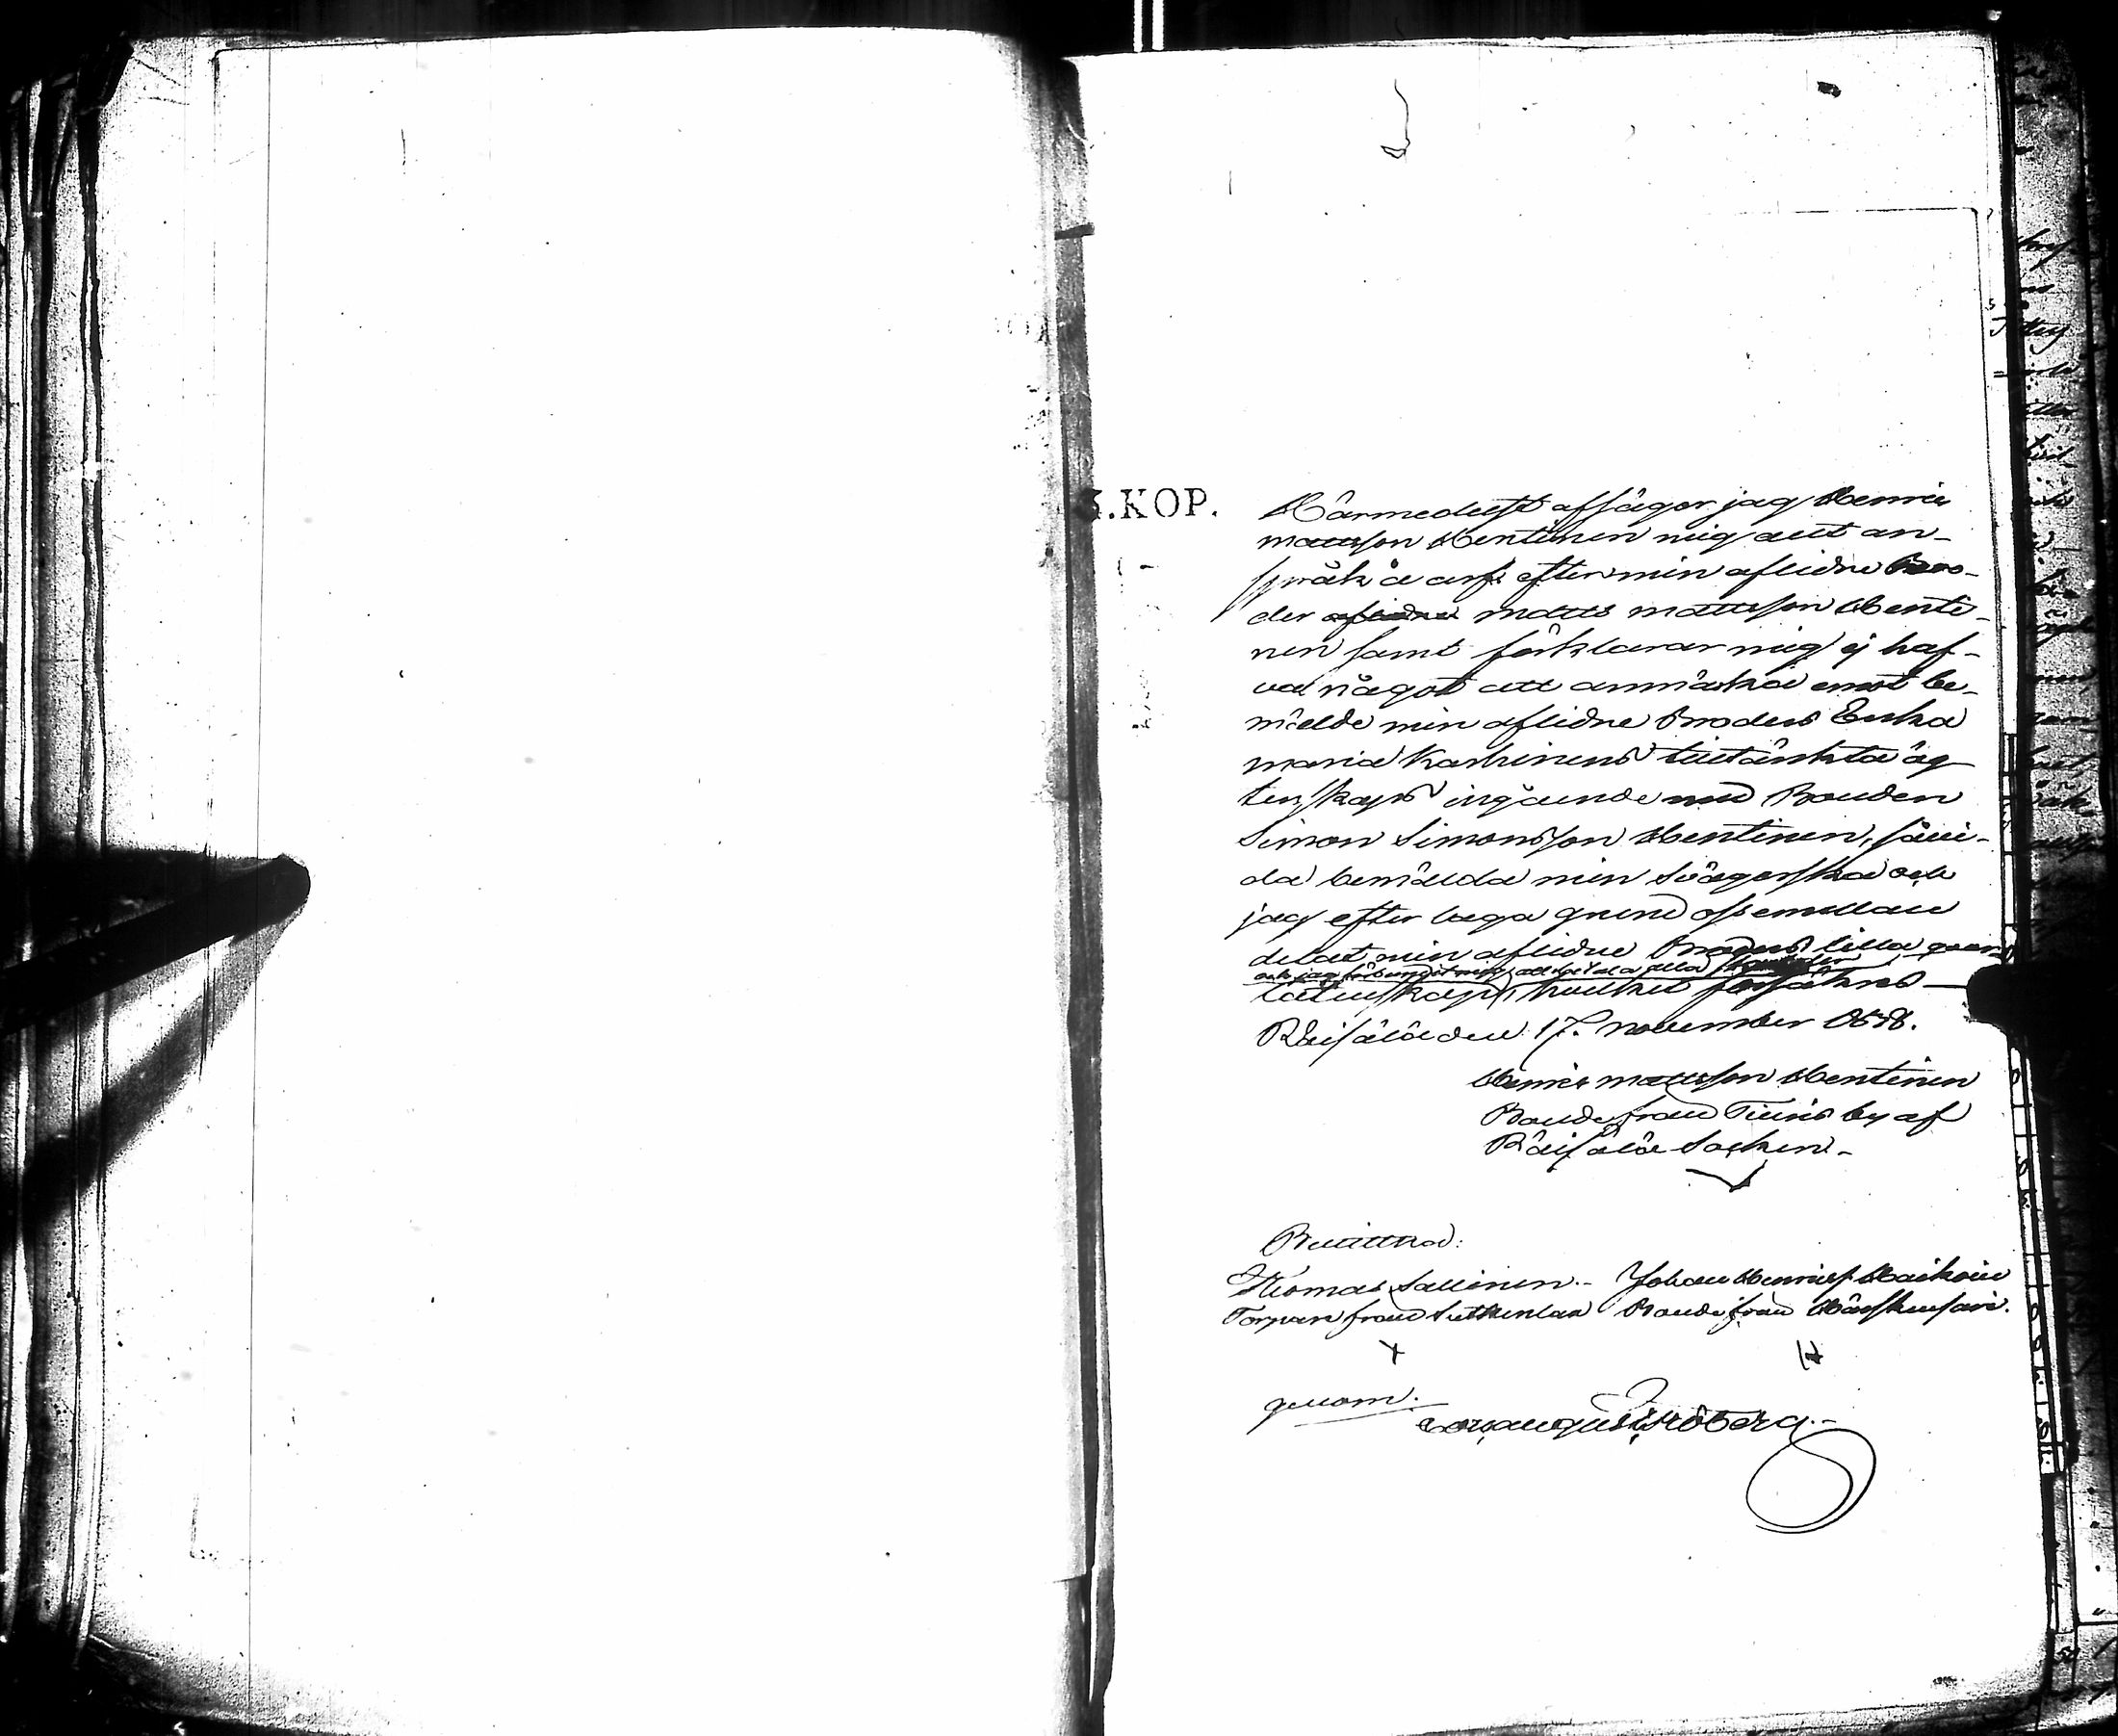 5.KOP.
Härmedelst afsäger jag Henric
Mattsson Hentinen mig allt an-
språk å arf efter min aflidne Bro-
der aflidne Matts Mattsson Henti-
nen samt förklarar mig ej haf-
va något att anmärka emot be-
mälde min aflidne Broders Enka
Maria Karhinens tilltänkta äg
tenskaps ingående med Bonden
Simon Simonsson Hentinen, såvi-
da bemälda min Svägerska och
jag efter laga grund oss emellan
delat min aflidne Broders lilla qvar-
och jag förbundit mig att betala alla
låtenskap, hvilket försäkras
Räisälä den 17. November 1858.
Henric Mattsson Hentinen
Bonde från Tiuris by af
Räisälä Socken.
Bevittna:
Thomas Sallinen. Johan Henrics.
Torpare från Bonde från
genom.